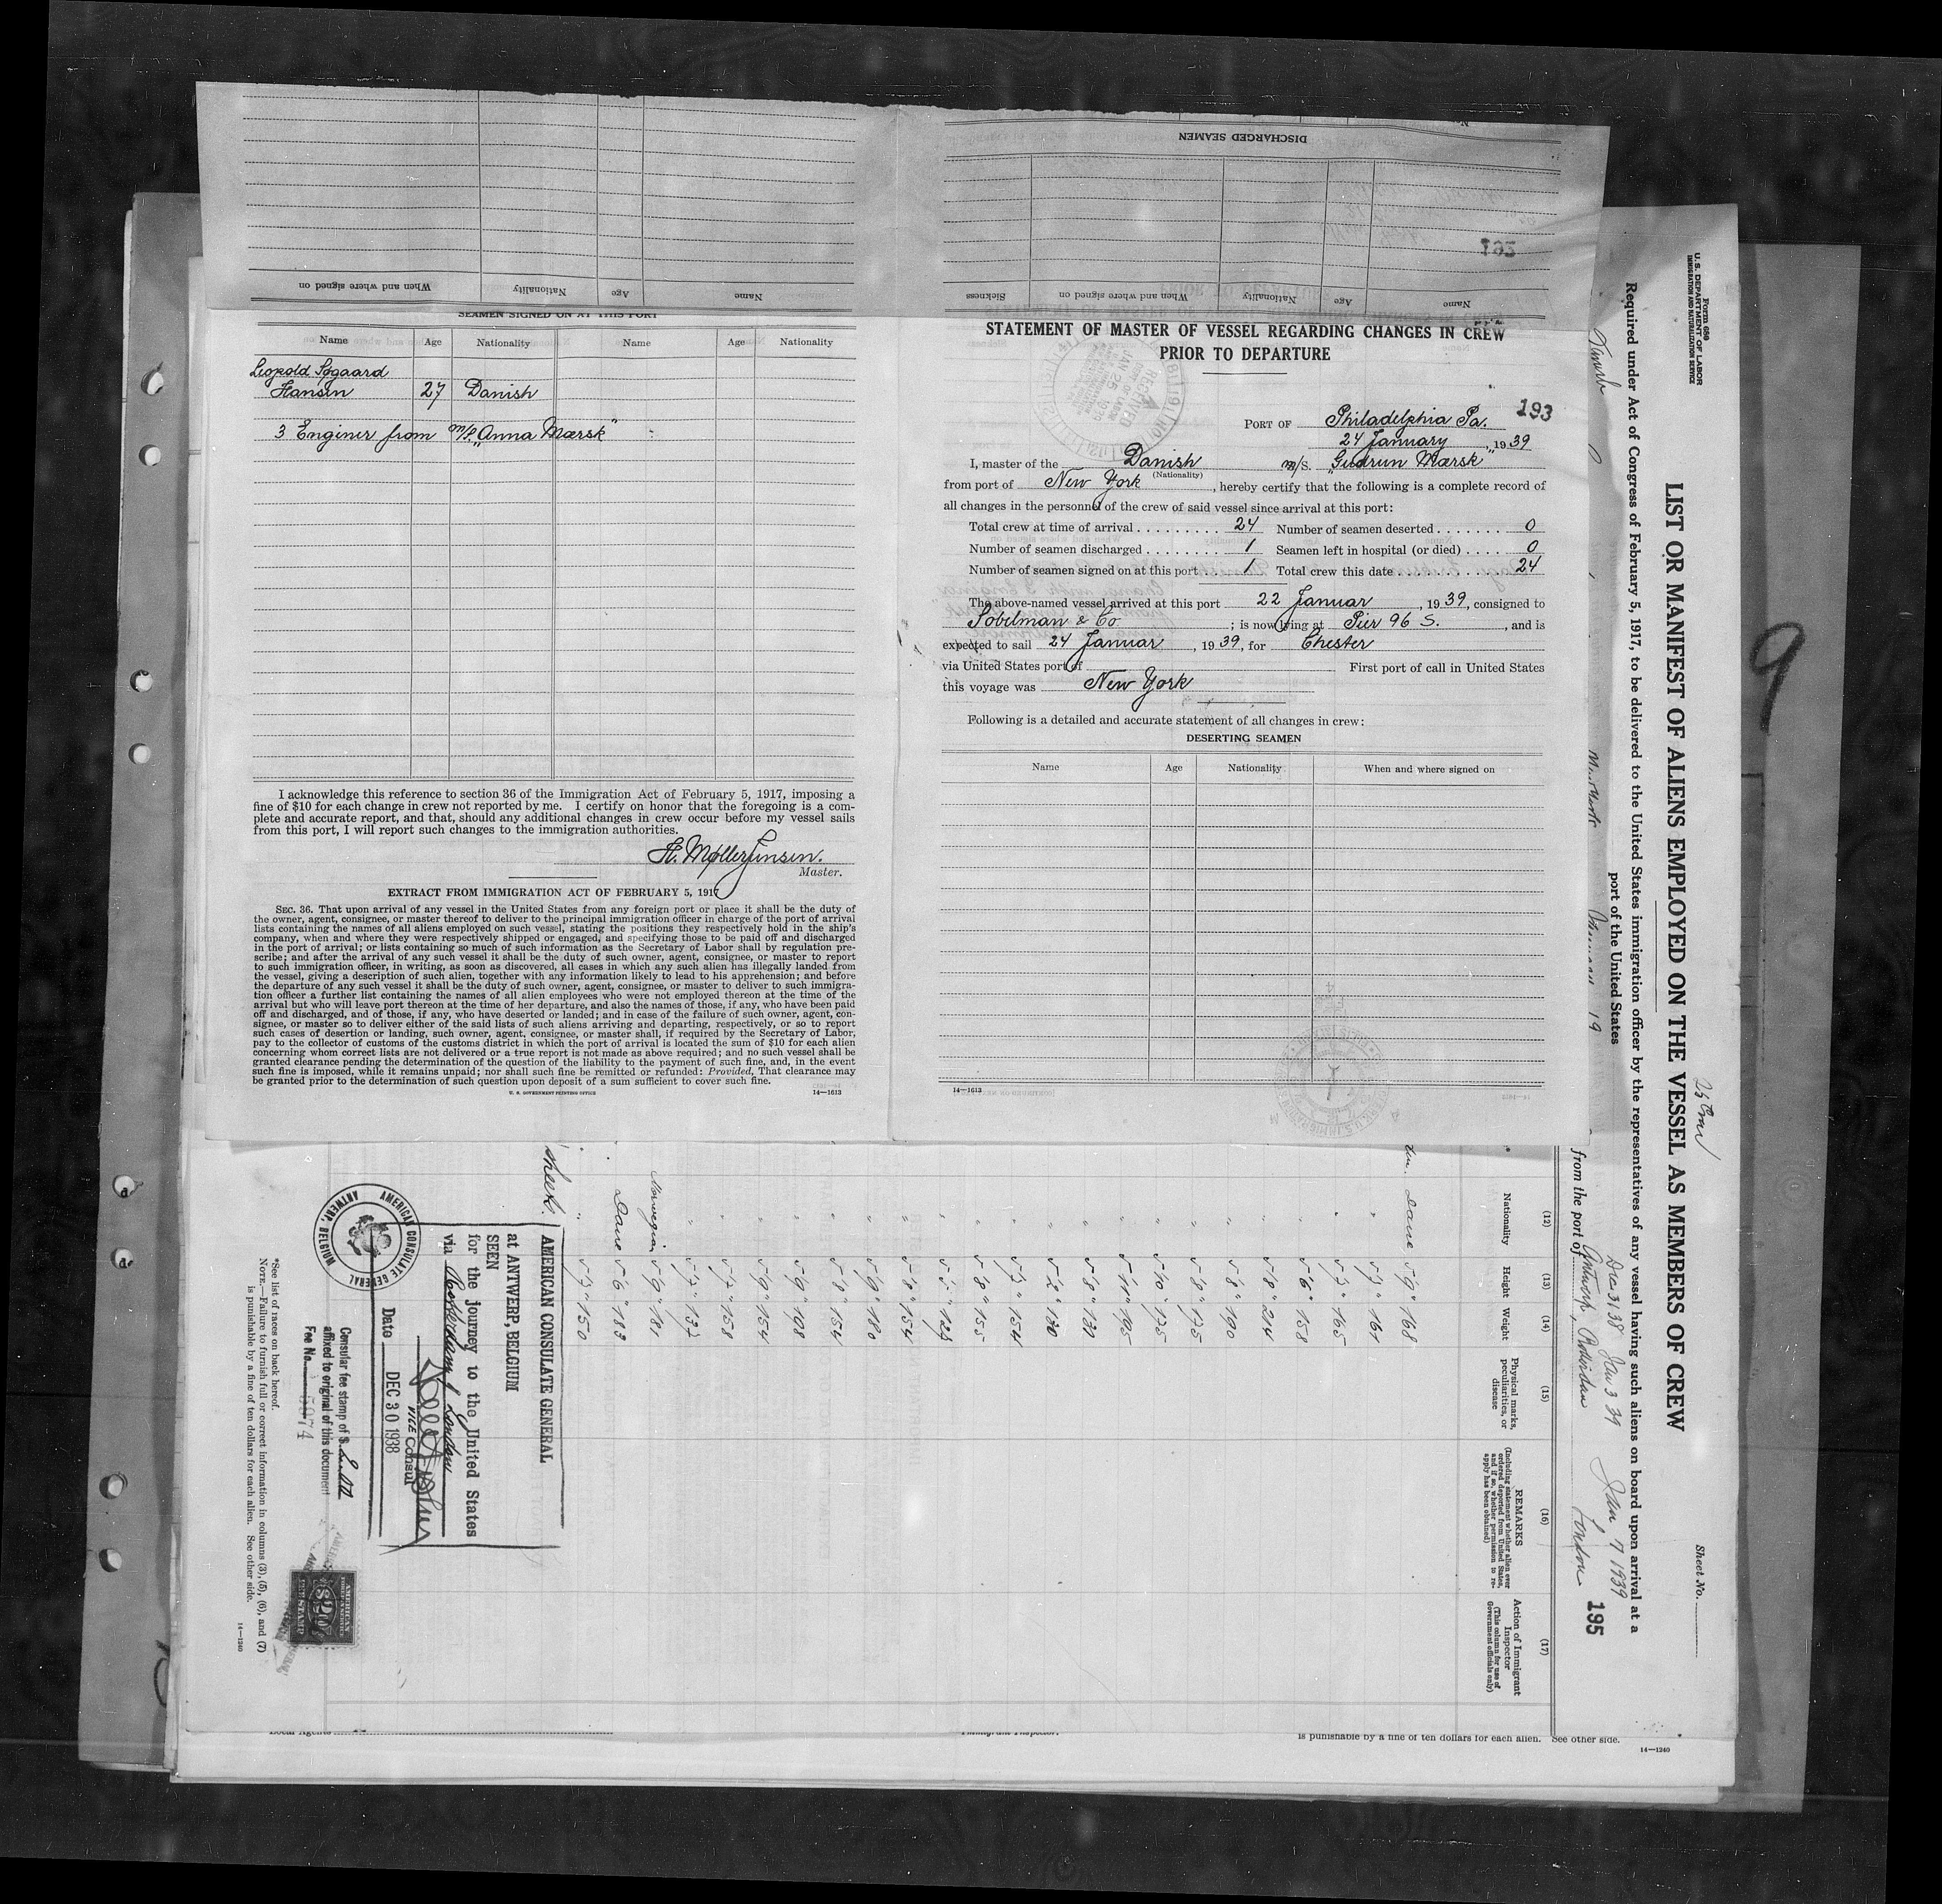 DISCHARGED SEAMEN
193
When and where signed on
Nationality
Age
Name
Sickness
When and where signed on
Nationality
Age
Name
SEAMEN SIGNED ON AT THIS PORT
Name Age Nationality Name Age Nationality
Leopold Søgaard
Hansen 27 Danish
3 Enginer from m/s. „Anna Mærsk"
I acknowledge this reference to section 36 of the Immigration Act of February 5, 1917, imposing a
fine of $10 for each change in crew not reported by me. I certify on honor that the foregoing is a com-
plete and accurate report, and that, should any additional changes in crew occur before my vessel sails
from this port, I will report such changes to the immigration authorities.
H. Møller Jensen.
Master.
EXTRACT FROM IMMIGRATION ACT OF FEBRUARY 5, 1917
SEC. 36. That upon arrival of any vessel in the United States from any foreign port or place it shall be the duty of
the owner, agent, consignee, or master thereof to deliver to the principal immigration officer in charge of the port of arrival
lists containing the names of all aliens employed on such vessel, stating the positions they respectively hold in the ship's
company, when and where they were respectively shipped or engaged, and specifying those to be paid off and discharged
in the port of arrival; or lists containing so much of such information as the Secretary of Labor shall by regulation pre-
scribe; and after the arrival of any such vessel it shall be the duty of such owner, agent, consignee, or master to report
to such immigration officer, in writing, as soon as discovered, all cases in which any such alien has illegally landed from
the vessel, giving a description of such alien, together with any information likely to lead to his apprehension; and before
the departure of any such vessel it shall be the duty of such owner, agent, consignee, or master to deliver to such immigra-
tion officer a further list containing the names of all alien employees who were not employed thereon at the time of the
arrival but who will leave port thereon at the time of her departure, and also the names of those, if any, who have been paid
off and discharged, and of those, if any, who have deserted or landed; and in case of the failure of such owner, agent, con-
signee, or master so to deliver either of the said lists of such aliens arriving and departing, respectively, or so to report
such cases of desertion or landing, such owner, agent, consignee, or master shall, if required by the Secretary of Labor,
pay to the collector of customs of the customs district in which the port of arrival is located the sum of $10 for each alien
concerning whom correct lists are not delivered or a true report is not made as above required; and no such vessel shall be
granted clearance pending the determination of the question of the liability to the payment of such fine, and, in the event
such fine is imposed, while it remains unpaid; nor shall such fine be remitted or refunded: Provided, That clearance may
be granted prior to the determination of such question upon deposit of a sum sufficient to cover such fine.
U. S. GOVERNMENT PRINTING OFFICE
14—1613
STATEMENT OF MASTER OF VESSEL REGARDING CHANGES IN CREW
PRIOR TO DEPARTURE
193
PORT OF Philadelphia Pa.
24 January, 1939
I, master of the Danish m/S. „Gudrun Mærsk"
(Nationality)
from port of New York, hereby certify that the following is a complete record of
all changes in the personnel of the crew of said vessel since arrival at this port:
Total crew at time of arrival 24 Number of seamen deserted 0
Number of seamen discharged 1 Seamen left in hospital (or died) 0
Number of seamen signed on at this port 1 Total crew this date 24
The above-named vessel arrived at this port 22 Januar, 1939, consigned to
Sobelman & Co; is now lying at Pier 96 S., and is
expected to sail 24 Januar, 1939, for Chester
via United States port of First port of call in United States
this voyage was New York
Following is a detailed and accurate statement of all changes in crew:
DESERTING SEAMEN
Name Age Nationality When and where signed on
14—1613
Form 680
U. S. DEPARTMENT OF LABOR
IMMIGRATION AND NATURALIZATION SERVICE
Sheet No.
LIST OR MANIFEST OF ALIENS EMPLOYED ON THE VESSEL AS MEMBERS OF CREW
Required under Act of Congress of February 5, 1917, to be delivered to the United States immigration officer by the representatives of any vessel having such aliens on board upon arrival at a
port of the United States
Dec 31 38 Jan 3 39 Jan 7 1939
from the port of Antwerp, Rotterdam London
195
(12) (13) (14) (15) (16) (17)
Nationality
Height
Weight
Physical marks, peculiarities, or disease
REMARKS
(Including statement whether alien ever ordered deported from United States, and if so, whether permission to re-apply has been obtained)
Action of Immigrant Inspector
(This column for use of Government officials only)
Dane 5'9" 168
" 5'7" 161
" 5'7" 165
" 5'6" 158
" 5'8" 214
5'8" 190
" 5'8" 175
" 5'10" 175
" 5'11" 195
" 5'8" 137
" 5'2" 130
" 5'7" 154
" 5'8" 155
" 5'5" 127
" 5'8" 154
" 5'9" 180
" 5'8" 154
" 5'9" 198
" 5'9" 154
" 5'7" 158
" 5'7" 137
Norwegian 5'9" 181
Dane 5'6" 183
" 5'7" 150
sheet.
AMERICAN CONSULATE GENERAL
at ANTWERP, BELGIUM
SEEN
for the journey to the United States
via Rotterdam, London
VICE Consul
Date DEC 30 1938
AMERICAN CONSULATE GENERAL
ANTWERP, BELGIUM
Consular fee stamp of $
affixed to original of this document
Fee No. 5974
AMERICAN
FEE STAMP
*See list of races on back hereof.
NOTE.—Failure to furnish full or correct information in columns (3), (5), (6), and (7)
is punishable by a fine of ten dollars for each alien. See other side.
14—1240
9
Local Agents
Immigrant Inspector.
is punishable by a fine of ten dollars for each alien. See other side.
14—1240